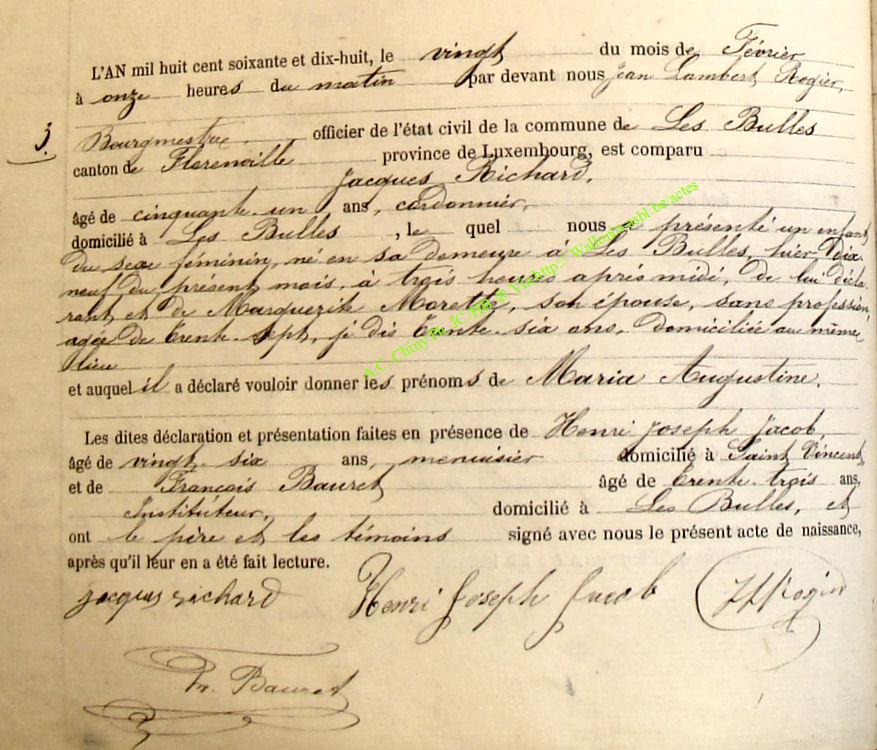 L'AN mil huit cent soixante et dix-huit, le vingt du mois de Février
à onze heures du matin par devant nous Jean Lambert Rogier,
3. Bourgmestre officier de l'état civil de la commune de Les Bulles
canton de Florenville province de Luxembourg, est comparu
Jacques Richard,
âgé de cinquante un ans, cordonnier,
domicilié à Les Bulles, le quel nous a présenté un enfant
du sexe féminin, né en sa demeure à Les Bulles, hier dix
neuf du présent mois, à trois heures après midi, de lui décla
rant et de Marguerite Moretz, son épouse, sans profession,
agée de trente sept, je dis trente six ans, domiciliée au même
lieu
et auquel il a déclaré vouloir donner les prénoms de Maria Augustine.
Les dites déclaration et présentation faites en présence de Henri Joseph Jacob,
âgé de vingt six ans, menuisier domicilié à Saint Vincent,
et de François Bauret âgé de trente trois ans,
Instituteur, domicilié à Les Bulles, et
ont le père et les témoins signé avec nous le présent acte de naissance,
après qu'il leur en a été fait lecture.
jacques richard Henri Joseph Jacob JLRogier
Bauret